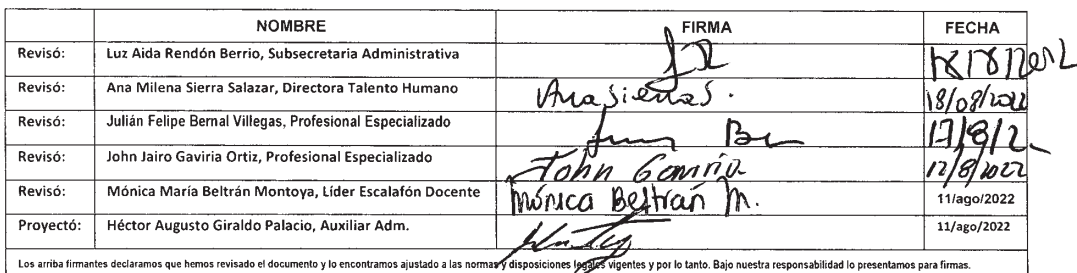 NOMBRE FIRMA FECHA
Revisó: Luz Aida Rendón Berrio, Subsecretaria Administrativa
Revisó: Ana Milena Sierra Salazar, Directora Talento Humano AnaSierraS. 18/08/2022
Revisó: Julián Felipe Bernal Villegas, Profesional Especializado 17/8/2
Revisó: John Jairo Gaviria Ortiz, Profesional Especializado John Gaviria 12/8/2022
Revisó: Mónica María Beltrán Montoya, Líder Escalafón Docente Mónica Beltrán M. 11/ago/2022
Proyectó: Héctor Augusto Giraldo Palacio, Auxiliar Adm. 11/ago/2022
Los arriba firmantes declaramos que hemos revisado el documento y lo encontramos ajustado a las normas y disposiciones legales vigentes y por lo tanto. Bajo nuestra responsabilidad lo presentamos para firmas.